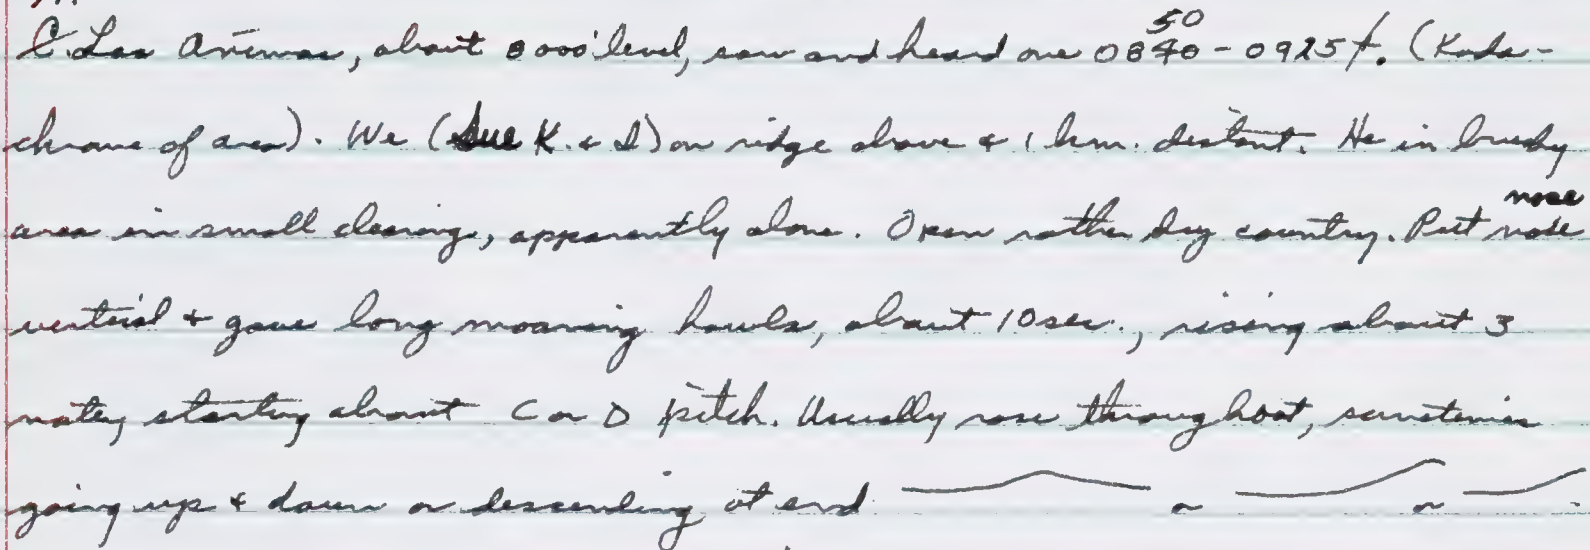 C. Las Animas, about 8000' level, saw and heard one 0850 - 0925+. (Koda-
chrome of area). We (Sue K. & I) on ridge above & 1 km. distant. He in brushy
area in small clearing, apparently alone. Open rather dry country. Put nose
vertical & gave long moaning howls, about 10 sec., rising about 3
notes, starting about C or D pitch. Usually rose throughout, sometimes
going up & down or descending at end or or